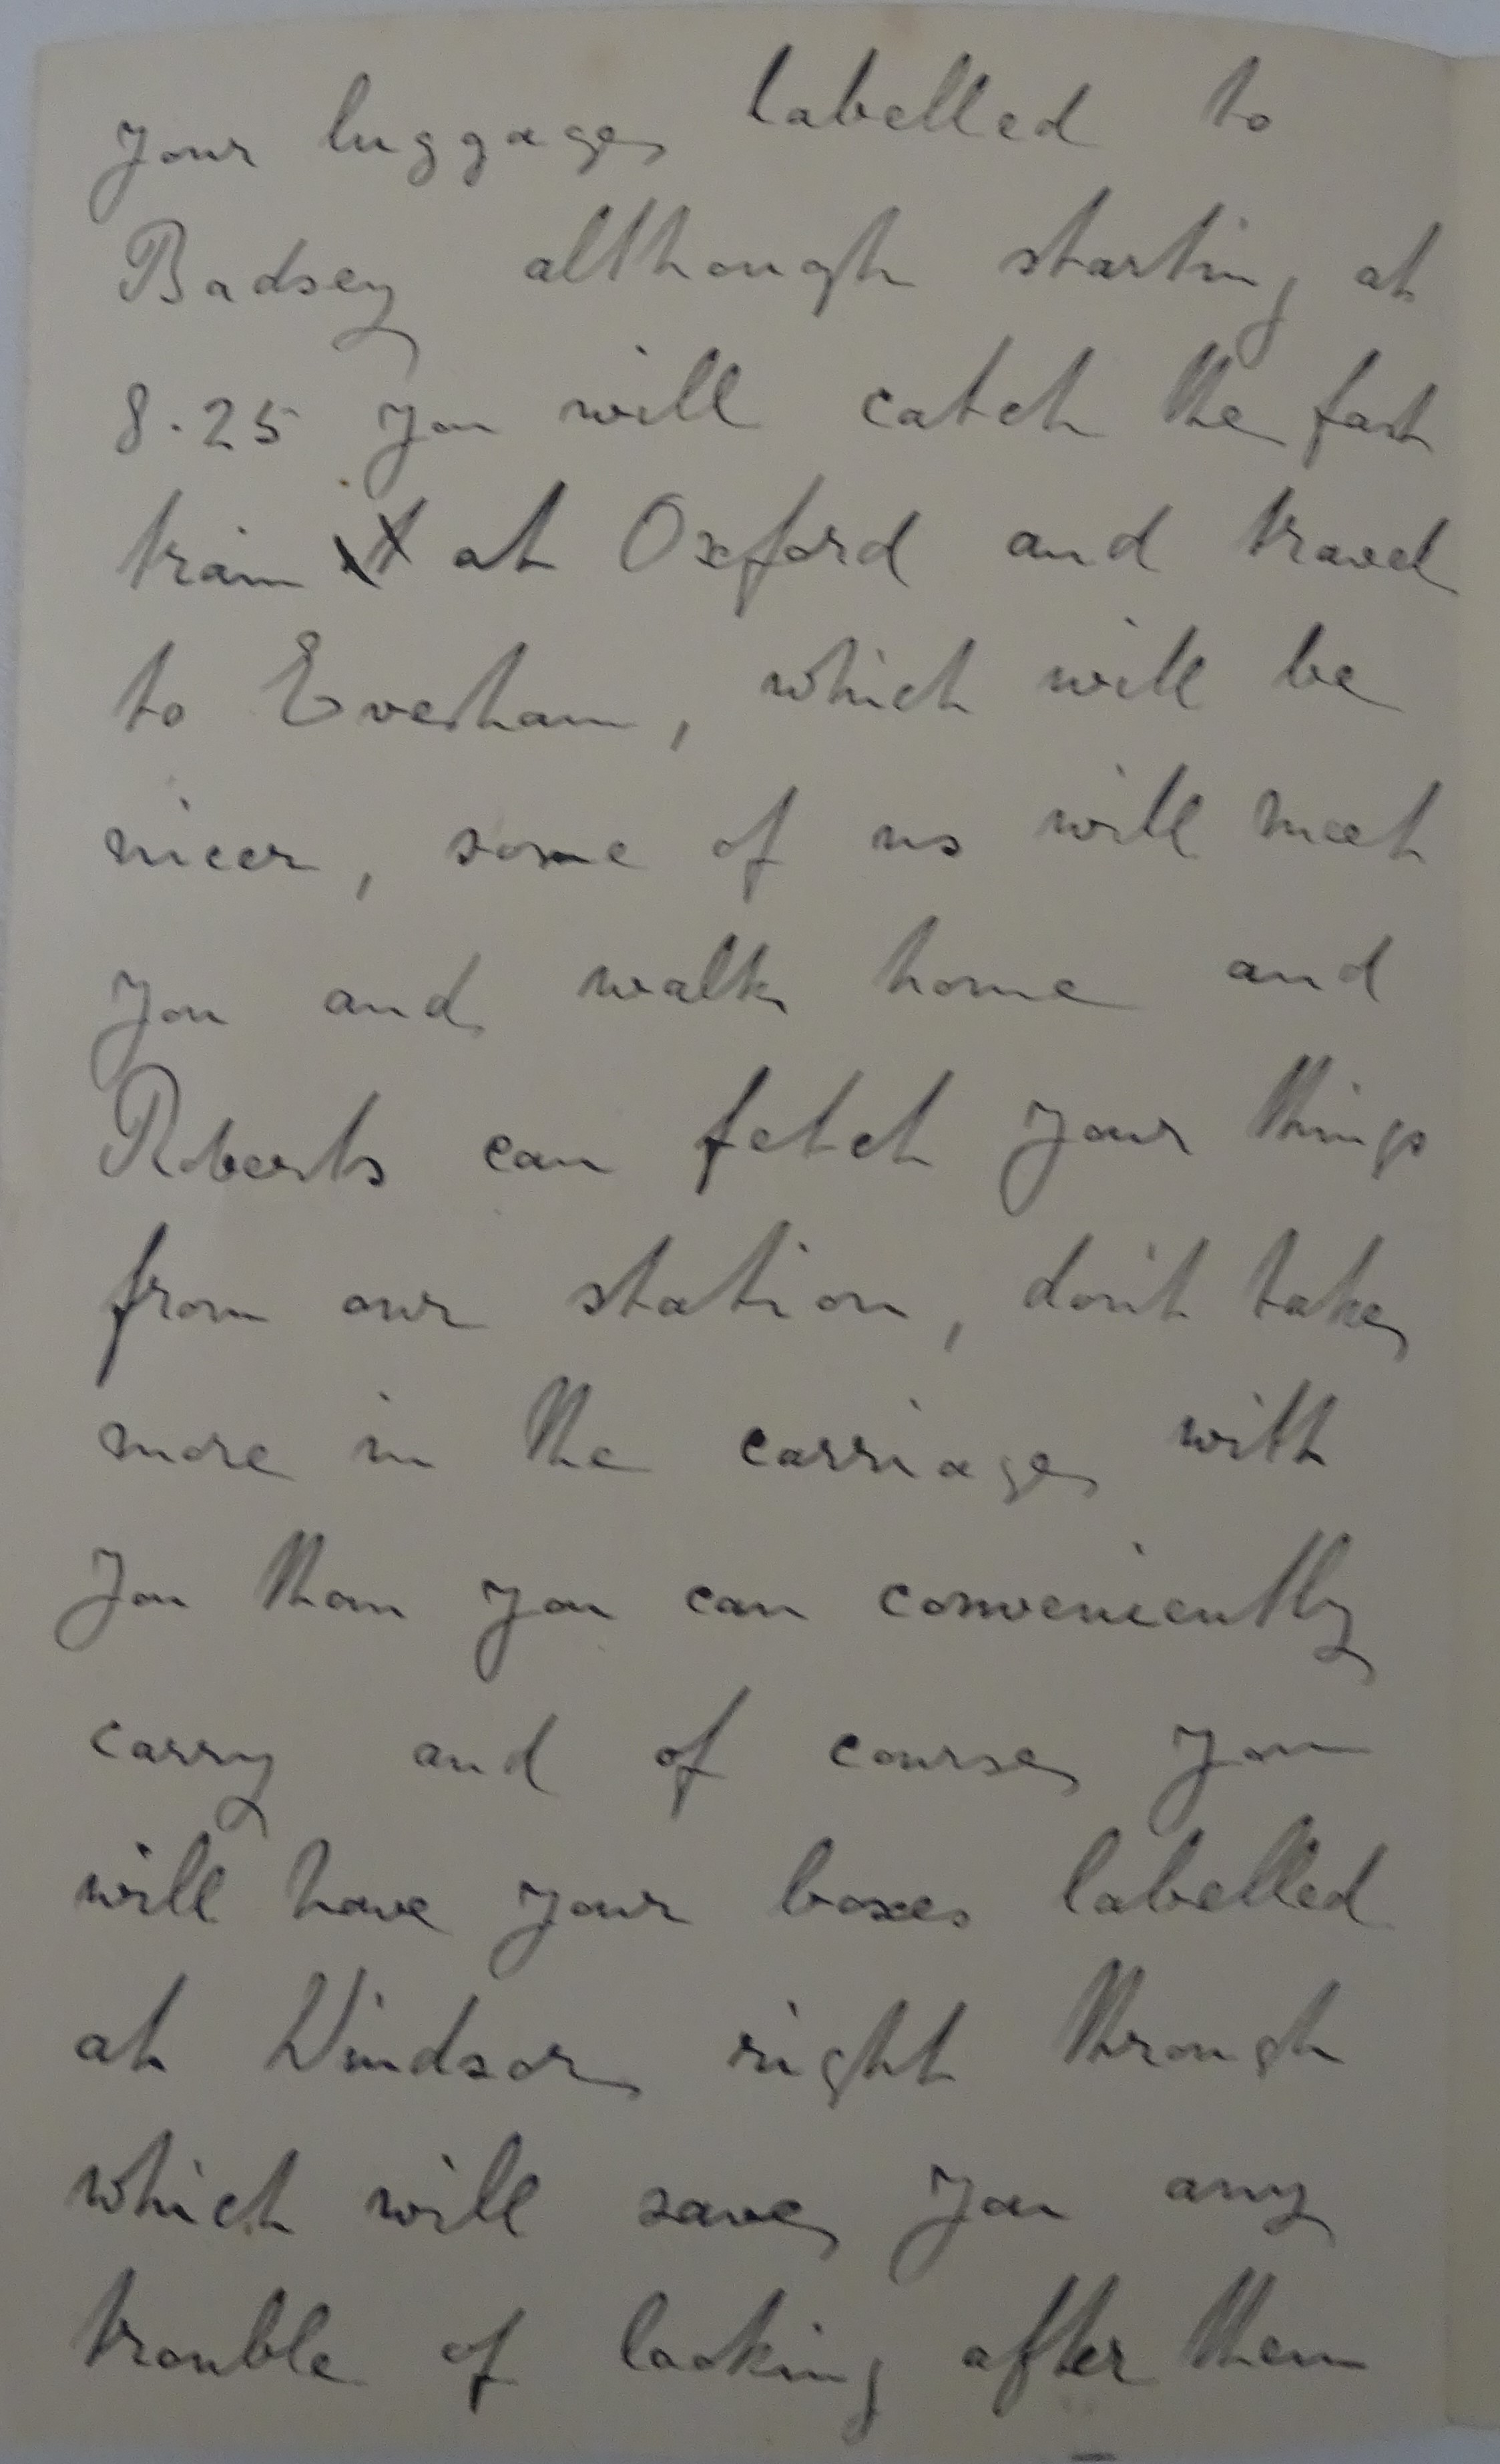 your luggage labelled to
Badsey although starting at
8.25 you will catch the fast
train at Oxford and travel
to Evesham, which will be
nicer, some of us will meet
you and walk home and
Roberts can fetch your things
from our station, don't take
more in the carriage with
you than you can conveniently
carry and of course you
will have your boxes labelled
at Windsor right through
which will save you any
trouble of looking after them